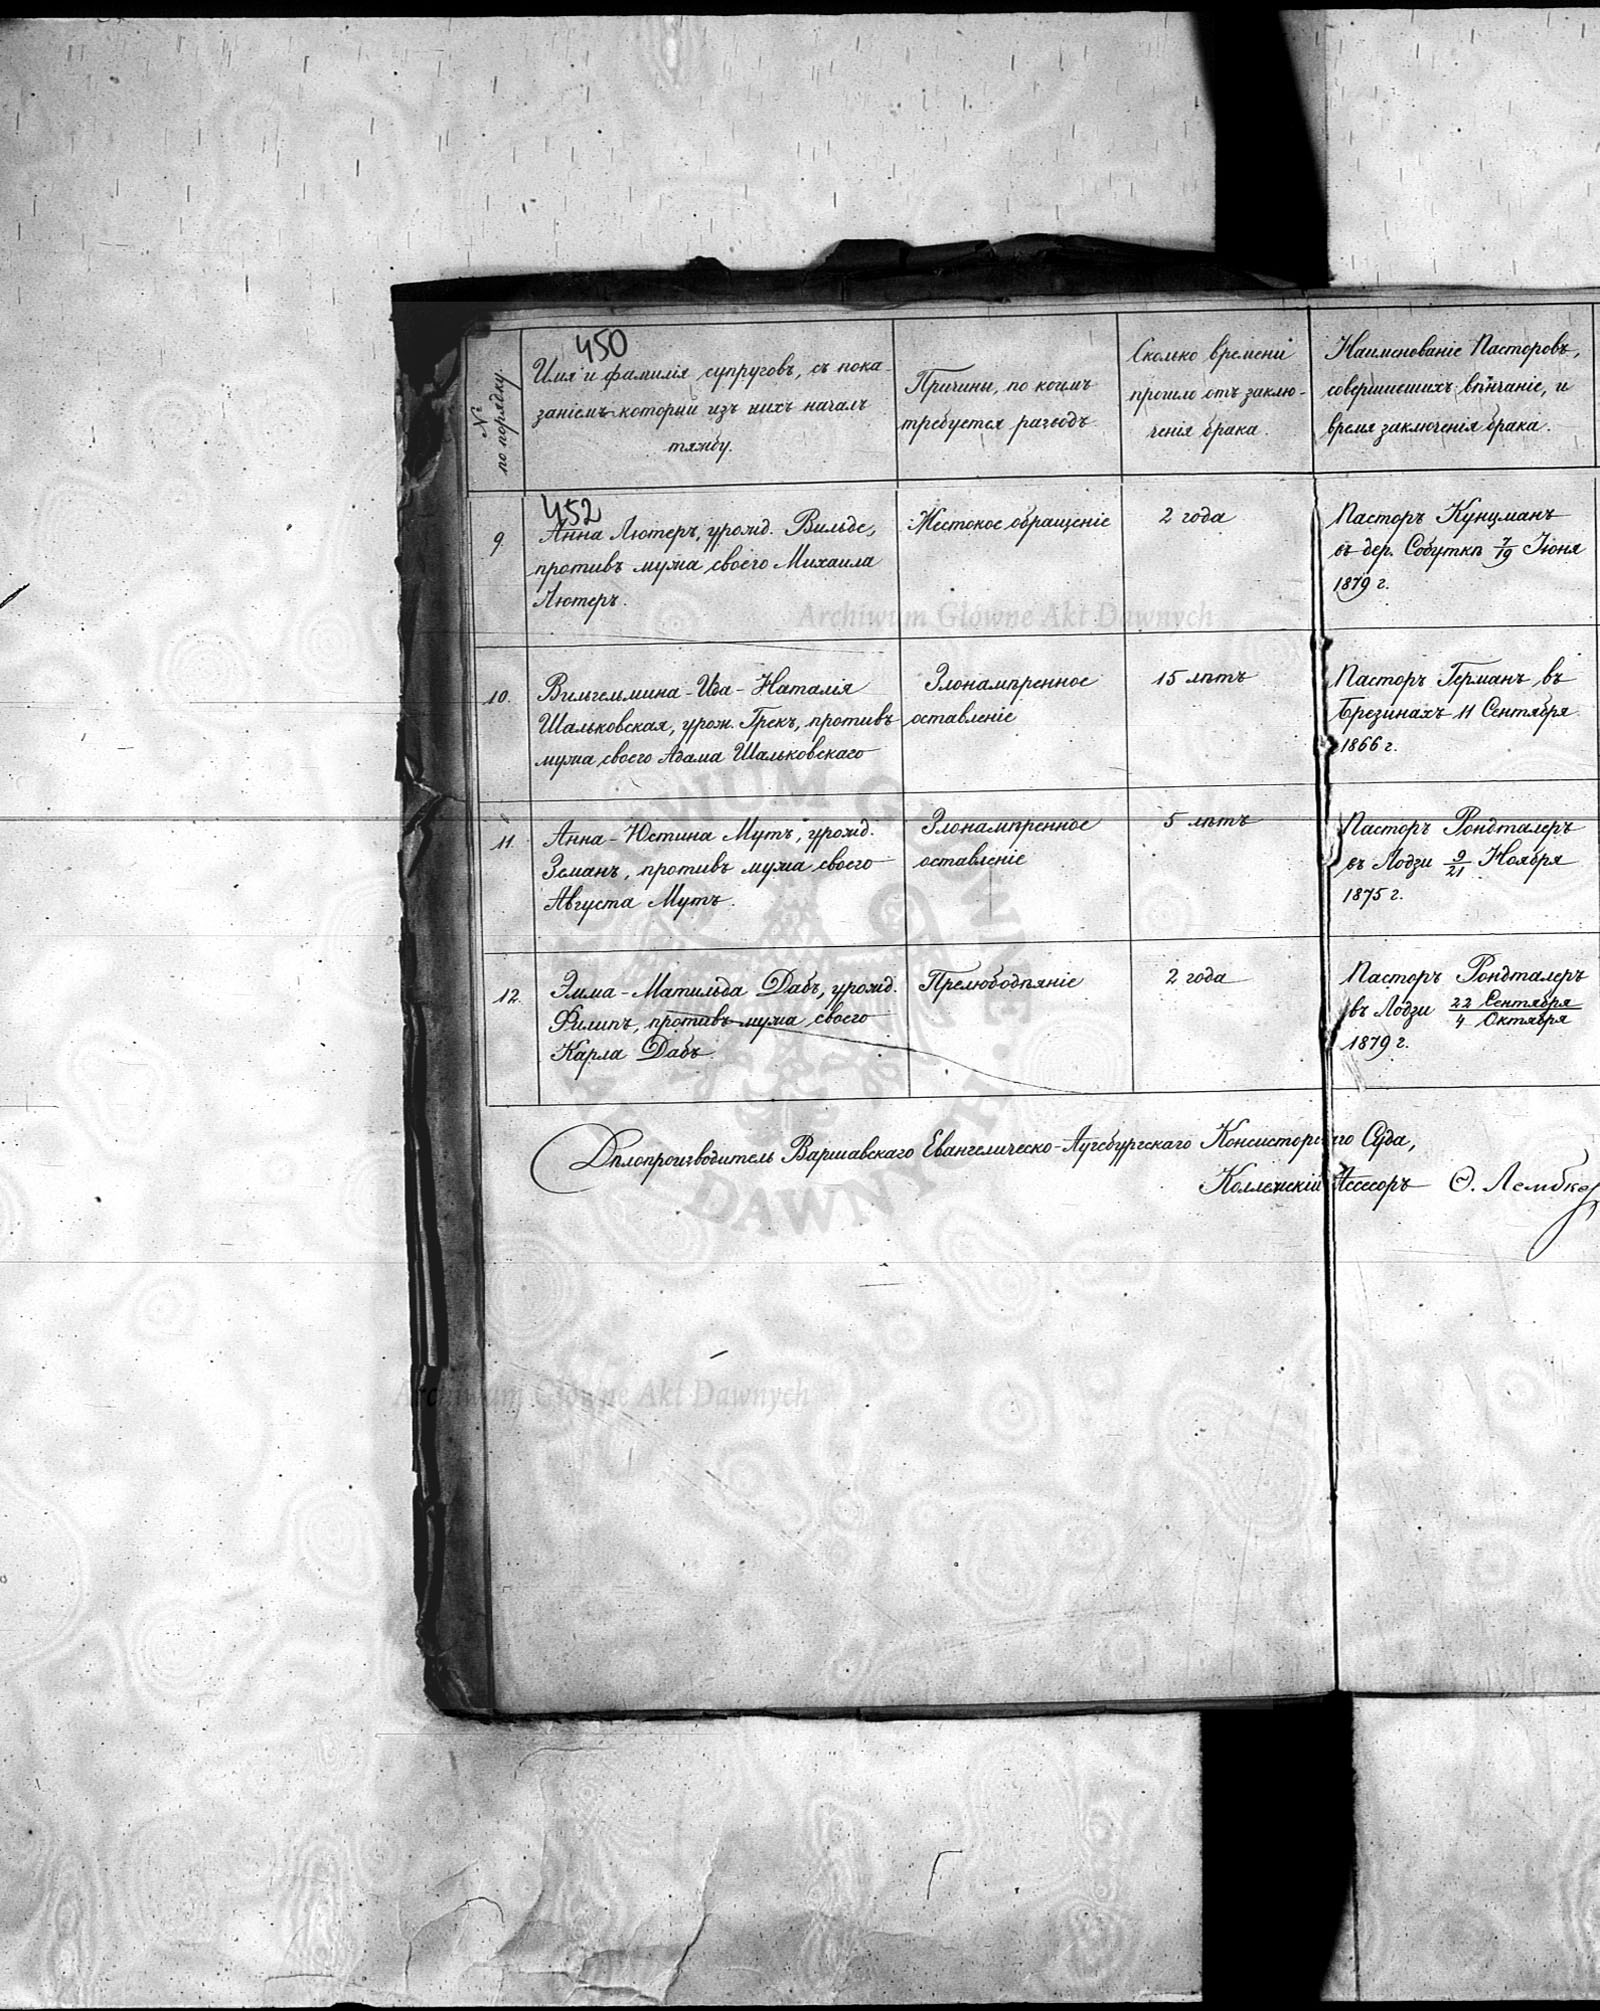 450
№
по порядку.
Имя и фамилія супруговъ, съ пока-
заніемъ который изъ нихъ началъ
тяжбу.
Причины, по коимъ
требуется разводъ
Сколько времени
прошло отъ заклю-
ченія брака.
Наименованіе Пасторовъ,
совершившихъ вѣнчаніе, и
время заключенія брака.
452
9.
Анна Лютеръ, урожд. Вильде,
противъ мужа своего Михаила
Лютеръ.
Жестокое обращеніе
2 года
Пасторъ Кунцманъ
въ дер. Собуткѣ 7/19 Іюня
1879 г.
10.
Вильгельмина-Ида-Наталія
Шальковская, урож. Грекъ, противъ
мужа своего Адама Шальковскаго
Злонамѣренное
оставленіе
15 лѣтъ
Пасторъ Германъ въ
Брезинахъ 11 Сентября
1866 г.
11.
Анна-Юстина Мутъ, урожд.
Земанъ, противъ мужа своего
Августа Мутъ.
Злонамѣренное
оставленіе
5 лѣтъ
Пасторъ Рондталеръ
въ Лодзи 9/21 Ноября
1875 г.
12.
Эмма-Матильда Дабъ, урожд.
Филипъ, противъ мужа своего
Карла Дабъ.
Прелюбодѣяніе
2 года
Пасторъ Рондталеръ
въ Лодзи 22 Сентября/4 Октября
1879 г.
Дѣлопроизводитель Варшавскаго Евангелическо-Аугсбургскаго Консисторскаго Суда,
Коллежскій Ассесоръ Ѳ. Лембке
Archiwum Główne Akt Dawnych
Archiwum Główne Akt Dawnych